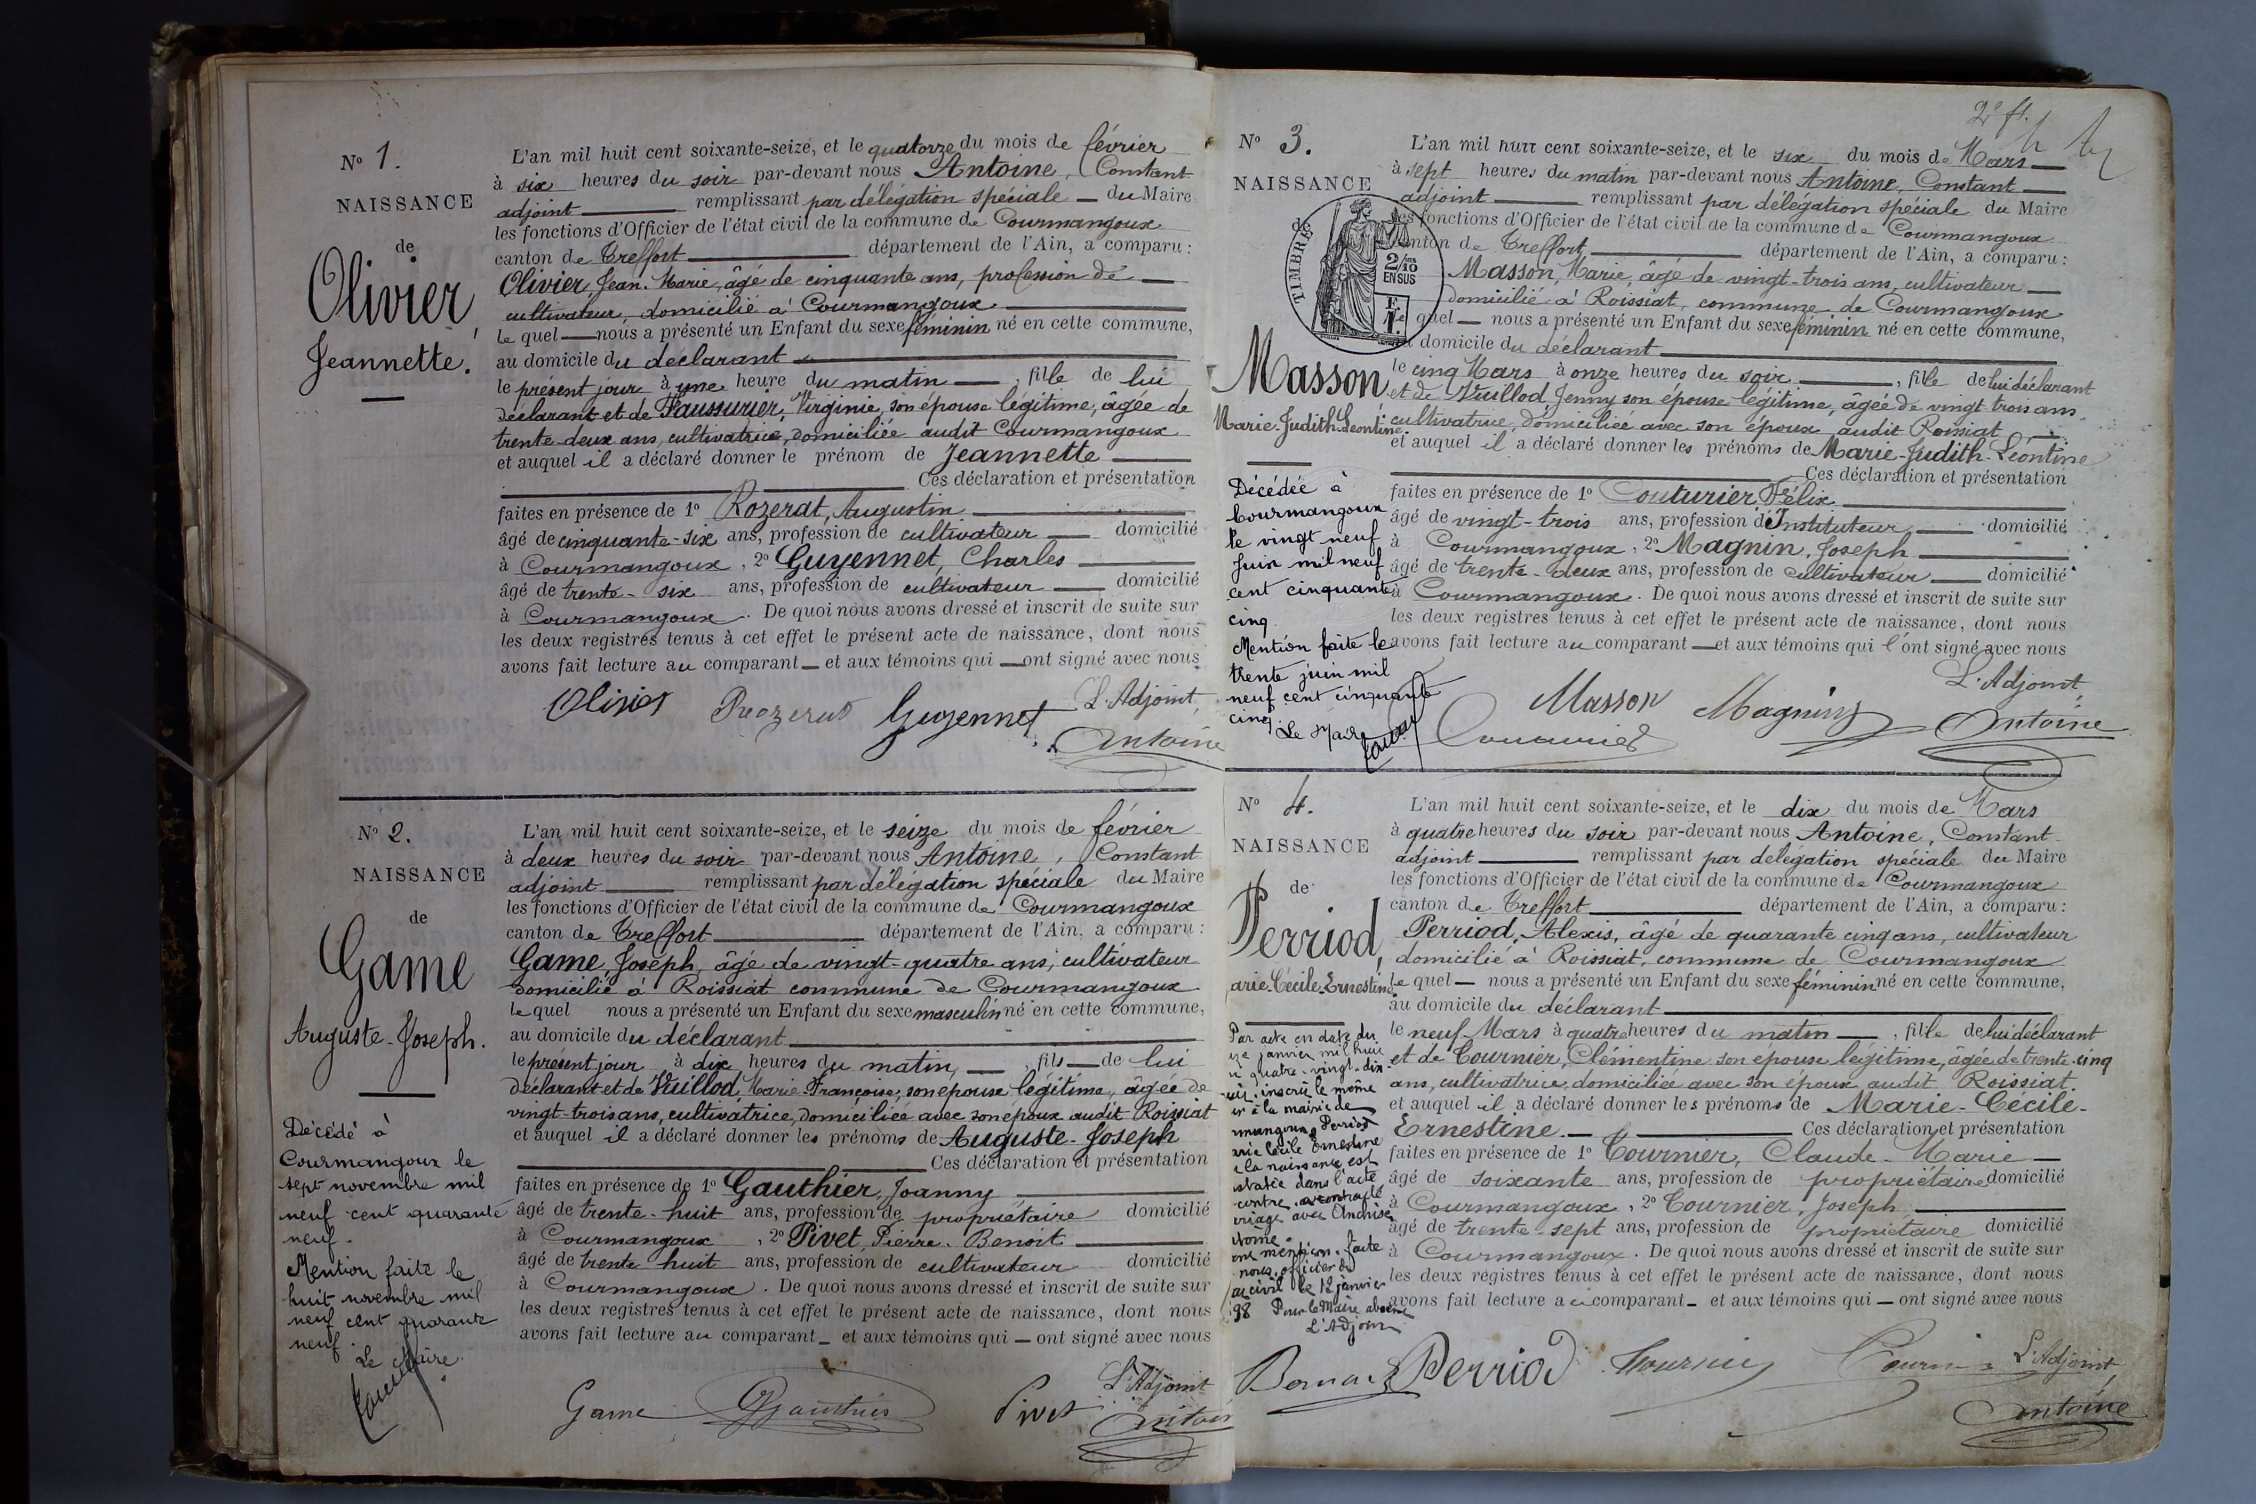 N° 1.
NAISSANCE
de
Olivier,
Jeannette.
L'an mil huit cent soixante-seize, et le quatorze du mois de février
à six heures du soir par-devant nous Antoine, Constant
adjoint remplissant par délégation spéciale du Maire
les fonctions d'Officier de l'état civil de la commune de Courmangoux
canton de Treffort département de l'Ain, a comparu :
Olivier, Jean-Marie, âgé de cinquante ans, profession de
cultivateur, domicilié à Courmangoux
le quel nous a présenté un Enfant du sexe féminin né en cette commune,
au domicile du déclarant
le présent jour à une heure du matin, fille de lui
déclarant et de Faussurier, Virginie, son épouse légitime, âgée de
trente-deux ans, cultivatrice, domiciliée audit Courmangoux
et auquel il a déclaré donner le prénom de Jeannette
Ces déclaration et présentation
faites en présence de 1° Rozerat, Augustin
âgé de cinquante-six ans, profession de cultivateur domicilié
à Courmangoux, 2° Guyennet, Charles
âgé de trente-six ans, profession de cultivateur domicilié
à Courmangoux. De quoi nous avons dressé et inscrit de suite sur
les deux registres tenus à cet effet le présent acte de naissance, dont nous
avons fait lecture au comparant et aux témoins qui ont signé avec nous
Olivier Rozerat Guyennet L'Adjoint,
Antoine
N° 2.
NAISSANCE
de
Game
Auguste-Joseph.
Décédé à
Courmangoux le
sept novembre mil
neuf cent quarante
neuf.
Mention faite le
huit novembre mil
neuf cent quarante
neuf.
Le Maire
L'an mil huit cent soixante-seize, et le seize du mois de février
à deux heures du soir par-devant nous Antoine, Constant
adjoint remplissant par délégation spéciale du Maire
les fonctions d'Officier de l'état civil de la commune de Courmangoux
canton de Treffort département de l'Ain, a comparu :
Game, Joseph, âgé de vingt-quatre ans, cultivateur
domicilié à Roissiat commune de Courmangoux
le quel nous a présenté un Enfant du sexe masculin né en cette commune,
au domicile du déclarant
le présent jour à dix heures du matin, fils de lui
déclarant et de Vuillod, Marie Françoise, son épouse légitime, âgée de
vingt-trois ans, cultivatrice, domiciliée avec son époux audit Roissiat
et auquel il a déclaré donner les prénoms de Auguste-Joseph
Ces déclaration et présentation
faites en présence de 1° Gauthier, Joanny
âgé de trente-huit ans, profession de propriétaire domicilié
à Courmangoux, 2° Pivet, Pierre-Benoit
âgé de trente huit ans, profession de cultivateur domicilié
à Courmangoux. De quoi nous avons dressé et inscrit de suite sur
les deux registres tenus à cet effet le présent acte de naissance, dont nous
avons fait lecture au comparant et aux témoins qui ont signé avec nous
L'Adjoint
Game Gauthier Pivet Antoine
2e ft.
N° 3.
NAISSANCE
de
TIMBRE
2/10 EN SUS
Masson
Marie-Judith-Léontine.
Décédée à
Courmangoux
le vingt neuf
Juin mil neuf
cent cinquante
cinq.
Mention faite le
trente juin mil
neuf cent cinquante
cinq.
Le Maire
L'an mil huit cent soixante-seize, et le six du mois de Mars
à sept heures du matin par-devant nous Antoine, Constant
adjoint remplissant par délégation spéciale du Maire
les fonctions d'Officier de l'état civil de la commune de Courmangoux
canton de Treffort département de l'Ain, a comparu :
Masson, Marie, âgé de vingt-trois ans, cultivateur
domicilié à Roissiat, commune de Courmangoux
le quel nous a présenté un Enfant du sexe féminin né en cette commune,
domicile du déclarant
le cinq Mars à onze heures du soir, fille de lui déclarant
et de Vuillod Jenny son épouse légitime, âgée de vingt trois ans
cultivatrice, domiciliée avec son époux audit Roissiat
et auquel il a déclaré donner les prénoms de Marie-Judith-Léontine
Ces déclaration et présentation
faites en présence de 1° Couturier, Félix
âgé de vingt-trois ans, profession d'Instituteur domicilié
à Courmangoux, 2° Magnin, Joseph
âgé de trente-deux ans, profession de cultivateur domicilié
à Courmangoux. De quoi nous avons dressé et inscrit de suite sur
les deux registres tenus à cet effet le présent acte de naissance, dont nous
avons fait lecture au comparant et aux témoins qui l'ont signé avec nous
L'Adjoint,
Masson Magnin Antoine
Couturier
N° 4.
NAISSANCE
de
Perriod,
arie-Cécile-Ernestine
Par acte en date du
janvier mil huit
quatre-vingt-dix
inscrit le même
à la mairie de
Perriod
Cécile Ernestine
la naissance est
dans l'acte
contre a contracté
avec Anchise
mention faite
nous officier de
civil le 12 janvier
98 Pour le Maire absent
L'Adjoint
L'an mil huit cent soixante-seize, et le dix du mois de Mars
à quatre heures du soir par-devant nous Antoine, Constant
adjoint remplissant par délégation spéciale du Maire
les fonctions d'Officier de l'état civil de la commune de Courmangoux
canton de Treffort département de l'Ain, a comparu :
Perriod, Alexis, âgé de quarante cinq ans, cultivateur
domicilié à Roissiat, commune de Courmangoux
le quel nous a présenté un Enfant du sexe féminin né en cette commune,
au domicile du déclarant
le neuf Mars à quatre heures du matin, fille de lui déclarant
et de Tournier, Clémentine son épouse légitime, âgée de trente-cinq
ans, cultivatrice, domiciliée avec son époux audit Roissiat.
et auquel il a déclaré donner les prénoms de Marie-Cécile-
Ernestine. Ces déclaration et présentation
faites en présence de 1° Tournier, Claude-Marie
âgé de soixante ans, profession de propriétaire domicilié
à Courmangoux, 2° Tournier, Joseph
âgé de trente-sept ans, profession de propriétaire domicilié
à Courmangoux. De quoi nous avons dressé et inscrit de suite sur
les deux registres tenus à cet effet le présent acte de naissance, dont nous
avons fait lecture au comparant et aux témoins qui ont signé avec nous
Perriod Tournier L'Adjoint,
Antoine